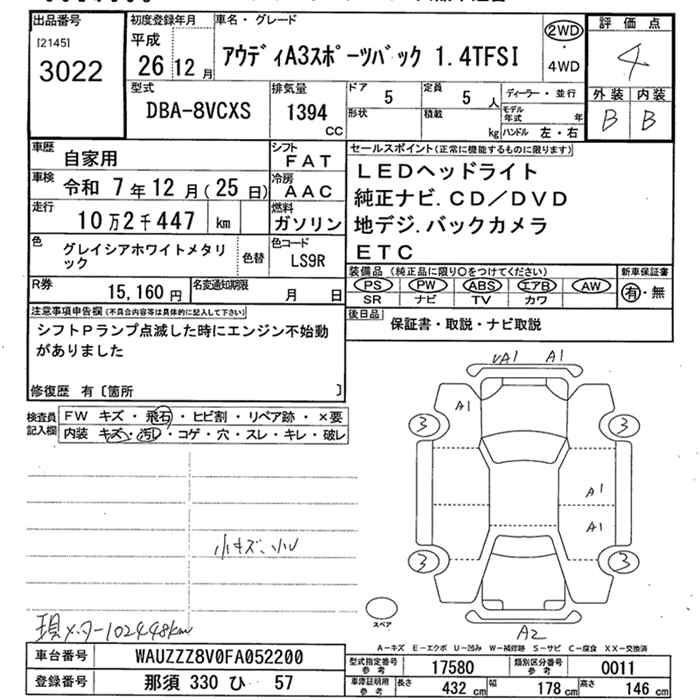 出品番号
[2145]
3022
初度登録年月
平成
26 12 月
車名・グレード
アウディA3スポーツバック 1.4TFSI
2WD
・
4WD
評価点
4
外装 内装
B B
型式
DBA-8VCXS
排気量
1394
CC
ドア
5
定員
5 人
形状
積載
kg
ディーラー・並行
モデル年式 年
ハンドル 左・右
車歴
自家用
シフト
FAT
車検
令和 7年12月(25日)
冷房
AAC
走行
10万2千447 km
燃料
ガソリン
色
グレイシアホワイトメタリ
ック
色替
色コード
LS9R
R券
15,160円
名変通知期限
月 日
セールスポイント(正常に機能するものに限ります)
LEDヘッドライト
純正ナビ.CD/DVD
地デジ.バックカメラ
ETC
装備品 (純正品に限り○をつけてください)
PS PW ABS エアB AW
SR ナビ TV カワ
新車保証書
有・無
後日品
保証書・取説・ナビ取説
注意事項申告欄(不具合内容等は具体的に記入して下さい)
シフトPランプ点滅した時にエンジン不始動
がありました
修復歴 有〔箇所 〕
検査員
記入欄
FW キズ・飛石・ヒビ割・リペア跡・×要
内装 キズ・汚レ・コゲ・穴・スレ・キレ・破レ
小キズ、小U
現メーター102448km
UA1 A1
A1
3 3
A1
A1
3 3
スペア
A2
A-キズ E-エクボ U-凹み W-補修跡 S-サビ C-腐食 XX-交換済
車台番号
WAUZZZ8V0FA052200
登録番号
那須 330 ひ 57
型式指定番号
参考
17580
類別区分番号
参考
0011
車庫証明用
参考
長さ 432 cm 幅 178 cm 高さ 146 cm